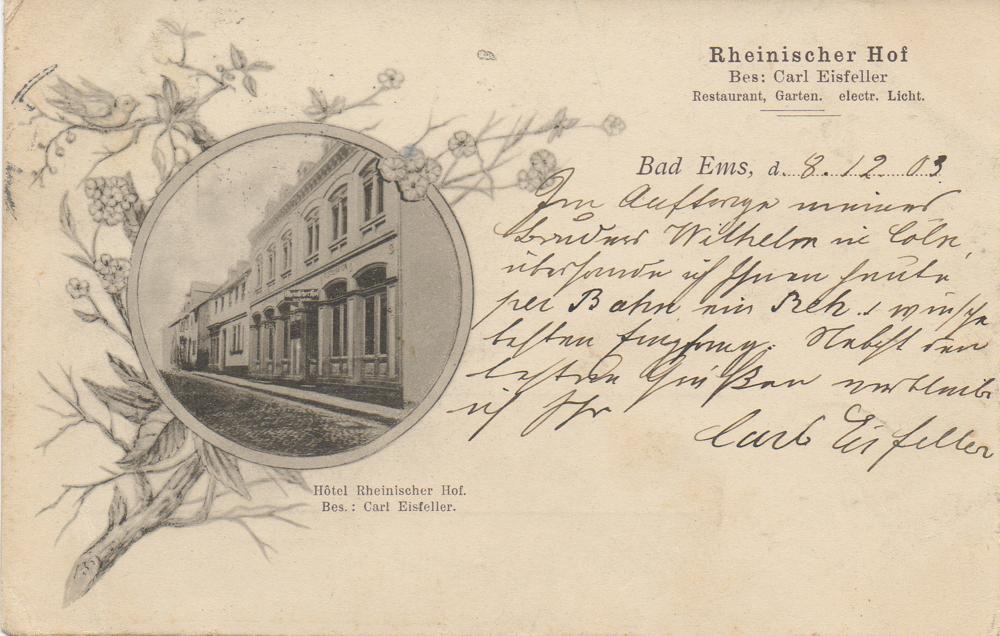 Rheinischer Hof
Bes: Carl Eisfeller
Restaurant, Garten. electr. Licht.
Bad Ems, d. 8. 12 03
Im Auftrage meines
Bruders Wilhelm in Cöln,
übersende ich Ihnen heute
per Bahn ein Reh & wünsche
besten Empfang. Nebst den
besten Grüßen verbleibe
ich Ihr
Carl Eisfeller
Hôtel Rheinischer Hof.
Bes.: Carl Eisfeller.